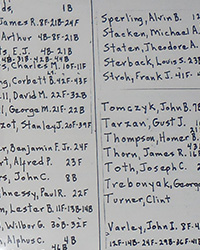 James R. 8F-21B-24F
Arthur 4B-8F-21B
E.J. 4B-21B
4B-31B-42B-44B
Charles M. 10F-11F
Corbett B. 42F-43F
David M. 22F-32B
George M. 21F-22B
Stanley J. 20F-39F
Benjamin F. Jr. 24F
Alfred P. 23F
John C. 8B
Paul R. 22F
Lester B. 11F-13B-14B
Wilbur G. 30B-32F
Alphus C. 4B
46B
Sperling, Alvin B. 12
Stacken, Michael A.
Staten, Theodore A.
Sterback, Louis S. 23B
Stroh, Frank J. 41F-
Tomczyk, John B. 7B
Tarzan, Gust J. 1
Thompson, Homer B.
Thorn, James R. 16
Toth, Joseph C. 2
Trebonyak, George
Turner, Clint
Varley, John I. 8F-4
12F-14B-24F-29B-36F-41